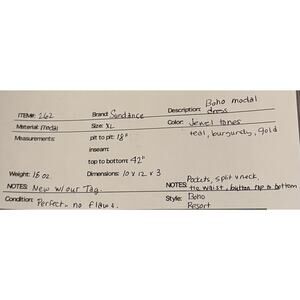 Boho modal
ITEM#: 262 Brand: Sundance Description: dress
Material: modal Size: XL Color: Jewel tones
Measurements: pit to pit: 18" teal, burgundy, gold
inseam:
top to bottom: 42"
Weight: 16 oz Dimensions: 10 x 12 x 3
NOTES: New w/our Tag. NOTES: Pockets, split v neck,
tie waist, button top to bottom
Condition: Perfect, no flaws. Style: Boho
Resort